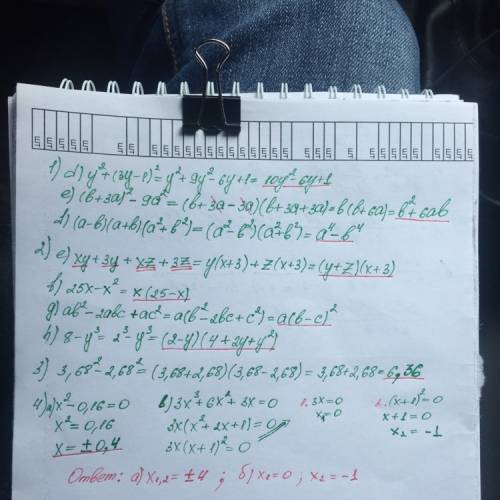 1) d) y² + (3y-1)² = y² + 9y² - 6y + 1 = 10y² - 6y + 1
e) (b+3a)² - 9a² = (b+3a-3a)(b+3a+3a) = b(b+6a) = b² + 6ab
f) (a-b)(a+b)(a²+b²) = (a²-b²)(a²+b²) = a⁴ - b⁴
2) e) xy + 3y + xz + 3z = y(x+3) + z(x+3) = (y+z)(x+3)
b) 25x - x² = x(25-x)
g) ab² - 2abc + ac² = a(b² - 2bc + c²) = a(b-c)²
h) 8 - y³ = 2³ - y³ = (2-y)(4+2y+y²)
3) 3,68² - 2,68² = (3,68+2,68)(3,68-2,68) = 3,68+2,68 = 6,36
4) a) x² - 0,16 = 0
x² = 0,16
x = ±0,4
b) 3x³ + 6x² + 3x = 0
3x(x² + 2x + 1) = 0
3x(x+1)² = 0
1. 3x = 0
x₁ = 0
2. (x+1)² = 0
x + 1 = 0
x₂ = -1
Ответ: а) x₁,₂ = ±4 ; б) x₁ = 0 ; x₂ = -1